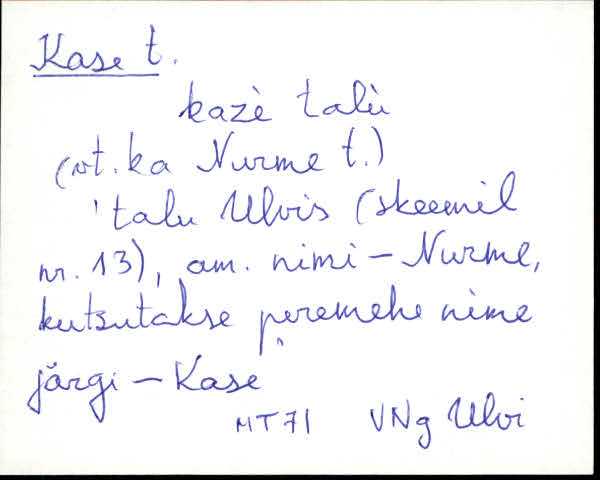 Kase t.
kazè talù
(vt. ka Nurme t.)
'talu Ulvis (skeemil
nr. 13), am. nimi – Nurme,
kutsutakse peremehe nime
järgi – Kase'
MT 71 VNg Ulvi